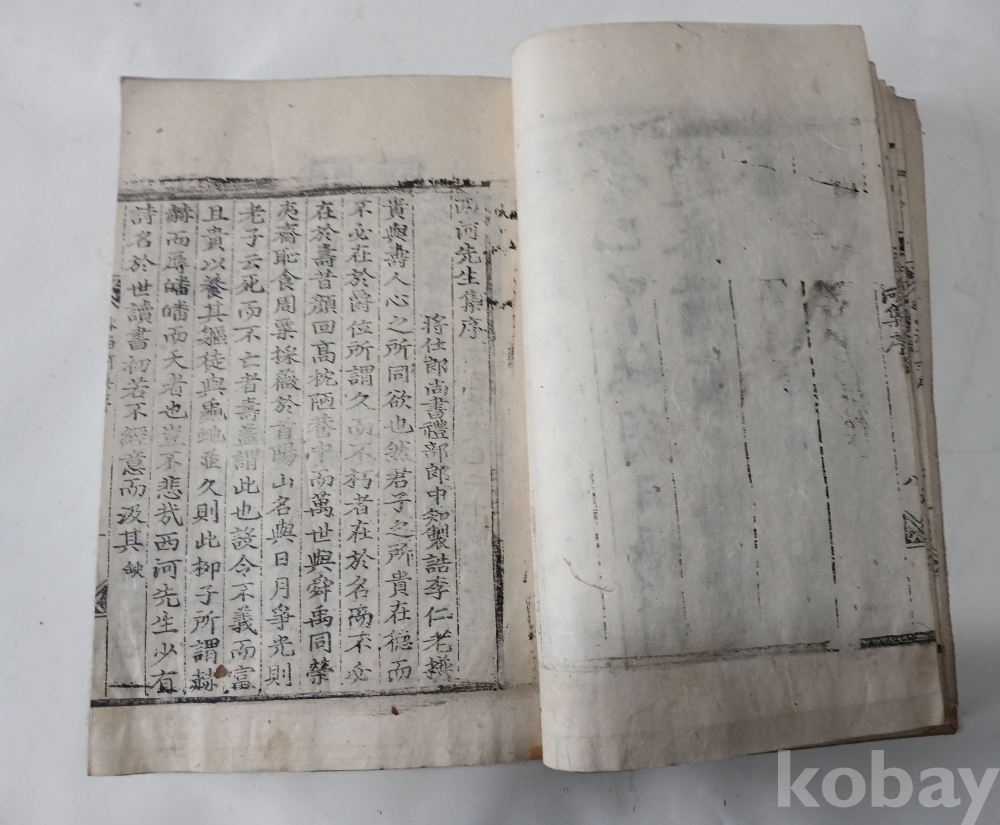 西河先生集序
將仕郎尚書禮部郎中知製誥李仁老撰
貴與壽人心之所同欲也然君子之所貴在德而
不必在於爵位所謂久而不朽者在於名而不必
在於壽昔顔回高枕陋巷中而萬世與舜禹同榮
夷齊恥食周粟採薇於首陽山名與日月爭光則
老子云死而不亡者壽蓋謂此也設令不義而富
且貴以養其軀徒與龜虵並久則此柳子所謂赫
赫而辱皤皤而夭者也豈不悲哉西河先生少有
詩名於世讀書初若不經意而汲其
集序
八
kobay